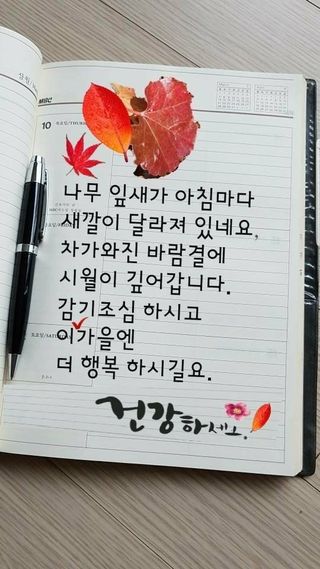 MBC
10 목요일/THURS
나무 잎새가 아침마다
새깔이 달라져 있네요,
차가와진 바람결에
시월이 깊어갑니다.
감기조심 하시고
토요일/SATURDA
이가을엔
더 행복 하시길요.
건강하세요.